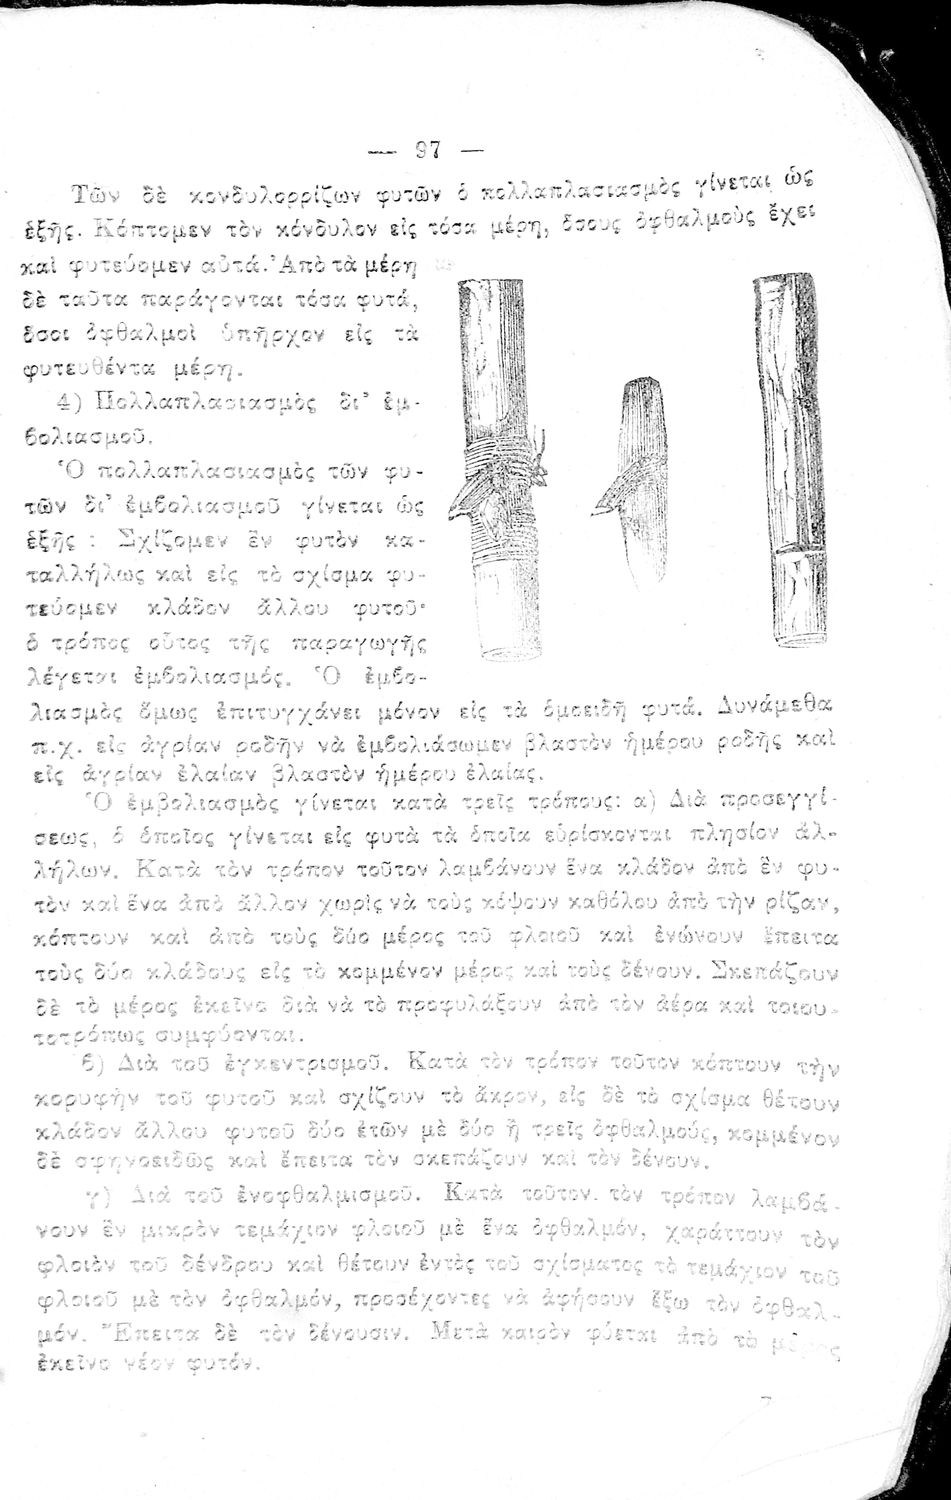 — 97 —
Τῶν δὲ κονδυλορρίζων φυτῶν ὁ πολλαπλασιασμὸς γίνεται ὡς
ἑξῆς. Κόπτομεν τὸν κόνδυλον εἰς τόσα μέρη, ὅσους ὀφθαλμοὺς ἔχει
καὶ φυτεύομεν αὐτά. Ἀπὸ τὰ μέρη
δὲ ταῦτα παράγονται τόσα φυτά,
ὅσοι ὀφθαλμοὶ ὑπῆρχον εἰς τὰ
φυτευθέντα μέρη.
4) Πολλαπλασιασμὸς δι’ ἐμ-
βολιασμοῦ.
Ὁ πολλαπλασιασμὸς τῶν φυ-
τῶν δι’ ἐμβολιασμοῦ γίνεται ὡς
ἑξῆς : Σχίζομεν ἓν φυτὸν κα-
ταλλήλως καὶ εἰς τὸ σχίσμα φυ-
τεύομεν κλάδον ἄλλου φυτοῦ·
ὁ τρόπος οὗτος τῆς παραγωγῆς
λέγεται ἐμβολιασμός. Ὁ ἐμβο-
λιασμὸς ὅμως ἐπιτυγχάνει μόνον εἰς τὰ ὁμοειδῆ φυτά. Δυνάμεθα
π.χ. εἰς ἀγρίαν ροδῆν νὰ ἐμβολιάσωμεν βλαστὸν ἡμέρου ροδῆς καὶ
εἰς ἀγρίαν ἐλαίαν βλαστὸν ἡμέρου ἐλαίας.
Ὁ ἐμβολιασμὸς γίνεται κατὰ τρεῖς τρόπους: α) Διὰ προσεγγί-
σεως, ὁ ὁποῖος γίνεται εἰς φυτὰ τὰ ὁποῖα εὑρίσκονται πλησίον ἀλ-
λήλων. Κατὰ τὸν τρόπον τοῦτον λαμβάνουν ἕνα κλάδον ἀπὸ ἓν φυ-
τὸν καὶ ἕνα ἀπὸ ἄλλον χωρὶς νὰ τοὺς κόψουν καθόλου ἀπὸ τὴν ρίζαν,
κόπτουν καὶ ἀπὸ τοὺς δύο μέρος τοῦ φλοιοῦ καὶ ἑνώνουν ἔπειτα
τοὺς δύο κλάδους εἰς τὸ κομμένον μέρος καὶ τοὺς δένουν. Σκεπάζουν
δὲ τὸ μέρος ἐκεῖνο διὰ νὰ τὸ προφυλάξουν ἀπὸ τὸν ἀέρα καὶ τοιου-
τοτρόπως συμφύονται.
β) Διὰ τοῦ ἐγκεντρισμοῦ. Κατὰ τὸν τρόπον τοῦτον κόπτουν τὴν
κορυφὴν τοῦ φυτοῦ καὶ σχίζουν τὸ ἄκρον, εἰς δὲ τὸ σχίσμα θέτουν
κλάδον ἄλλου φυτοῦ δύο ἐτῶν μὲ δύο ἢ τρεῖς ὀφθαλμούς, κομμένον
δὲ σφηνοειδῶς καὶ ἔπειτα τὸν σκεπάζουν καὶ τὸν δένουν.
γ) Διὰ τοῦ ἐνοφθαλμισμοῦ. Κατὰ τοῦτον. τὸν τρόπον λαμβά-
νουν ἓν μικρὸν τεμάχιον φλοιοῦ μὲ ἕνα ὀφθαλμόν, χαράττουν τὸν
φλοιὸν τοῦ δένδρου καὶ θέτουν ἐντὸς τοῦ σχίσματος τὸ τεμάχιον τοῦ
φλοιοῦ μὲ τὸν ὀφθαλμόν, προσέχοντες νὰ ἀφήσουν ἔξω τὸν ὀφθαλ-
μόν. Ἔπειτα δὲ τὸν δένουσιν. Μετὰ καιρὸν φύεται ἀπὸ τὸ μέρος
ἐκεῖνο νέον φυτόν.
7